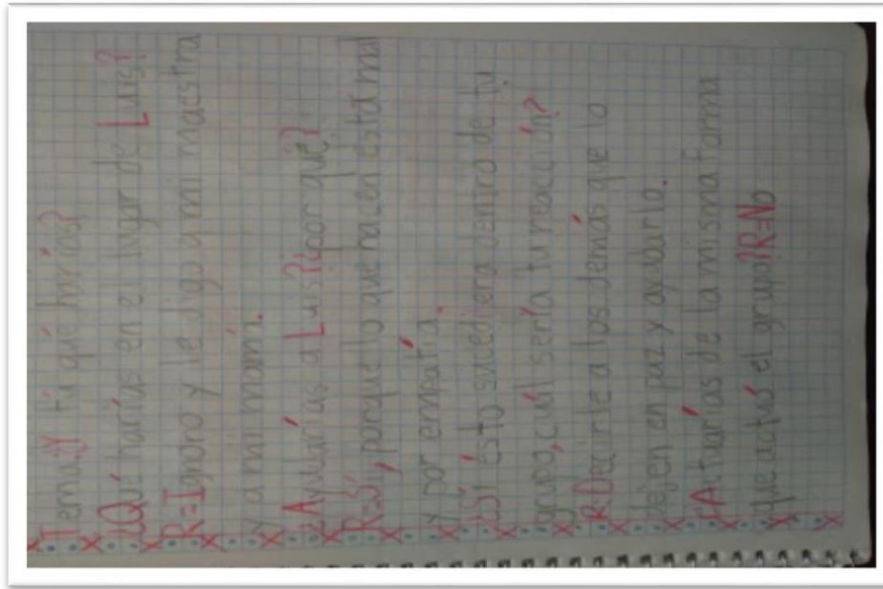 Tema: ¿Y tú qué harías?
¿Qué harías en el lugar de Luis?
R=Ignoro y le digo a mi maestra
y a mi mamá.
¿Ayudarías a Luis? ¿por qué?
R=Sí, porque lo que hacen está mal
y por empatía.
¿Sí ésto sucediera dentro de tu
grupo, cuál sería tu reacción?
R=Decirle a los demás que lo
dejen en paz y ayudarlo.
¿Actuarías de la misma forma
que actuó el grupo? R=No